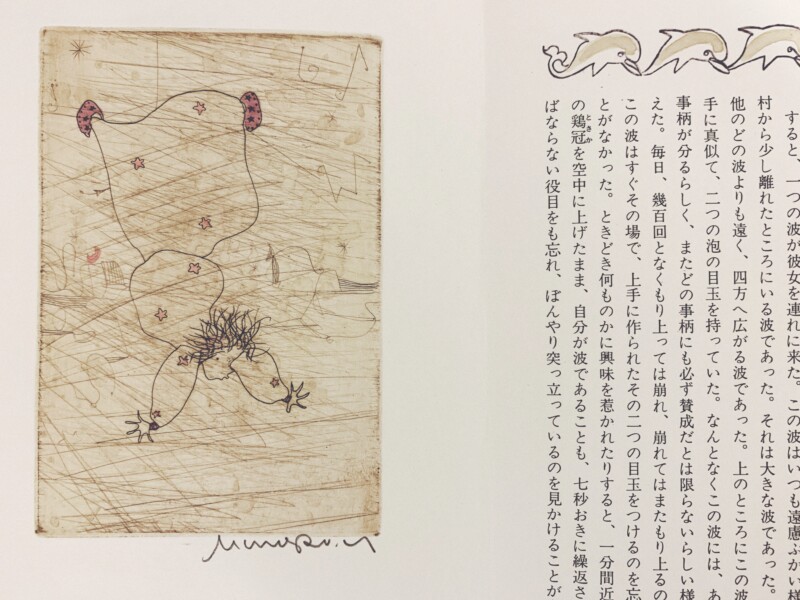 すると、一つの波が彼女を連れに来た。この波はいつも遠慮ぶかい様
村から少し離れたところにいる波であった。それは大きな波であった。
他のどの波よりも遠く、四方へ広がる波であった。上のところにこの波
手に真似て、二つの泡の目玉を持っていた。なんとなくこの波には、あ
事柄が分るらしく、またどの事柄にも必ず賛成だとは限らないらしい様
えた。毎日、幾百回となくもり上っては崩れ、崩れてはまたもり上るの
この波はすぐその場で、上手に作られたその二つの目玉をつけるのを忘
とがなかった。ときどき何ものかに興味を惹かれたりすると、一分間近
の鶏冠を空中に上げたまま、自分が波であることも、七秒おきに繰返さ
ばならない役目をも忘れ、ぼんやり突っ立っているのを見かけることが